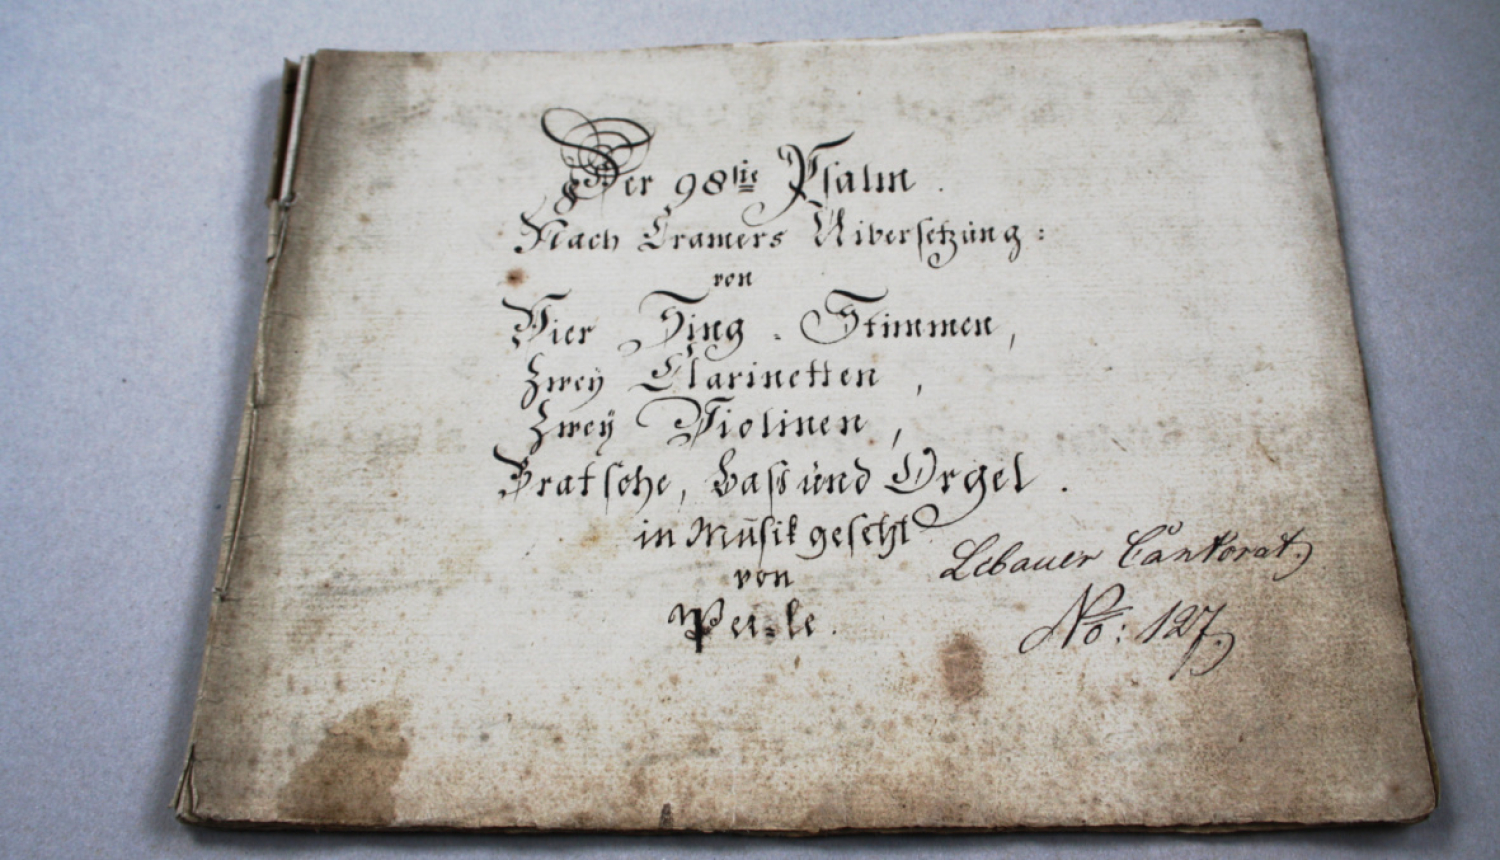 Der 98tie Psalm.
Nach Cramers Uibersetzüng:
von
Vier Sing-Stimmen,
Zwey Clarinetten,
Zweÿ Violinen,
Bratsche, Bass ünd Orgel.
in Müsik gesetzt
von
Lebauer Cantorat.
No: 127.